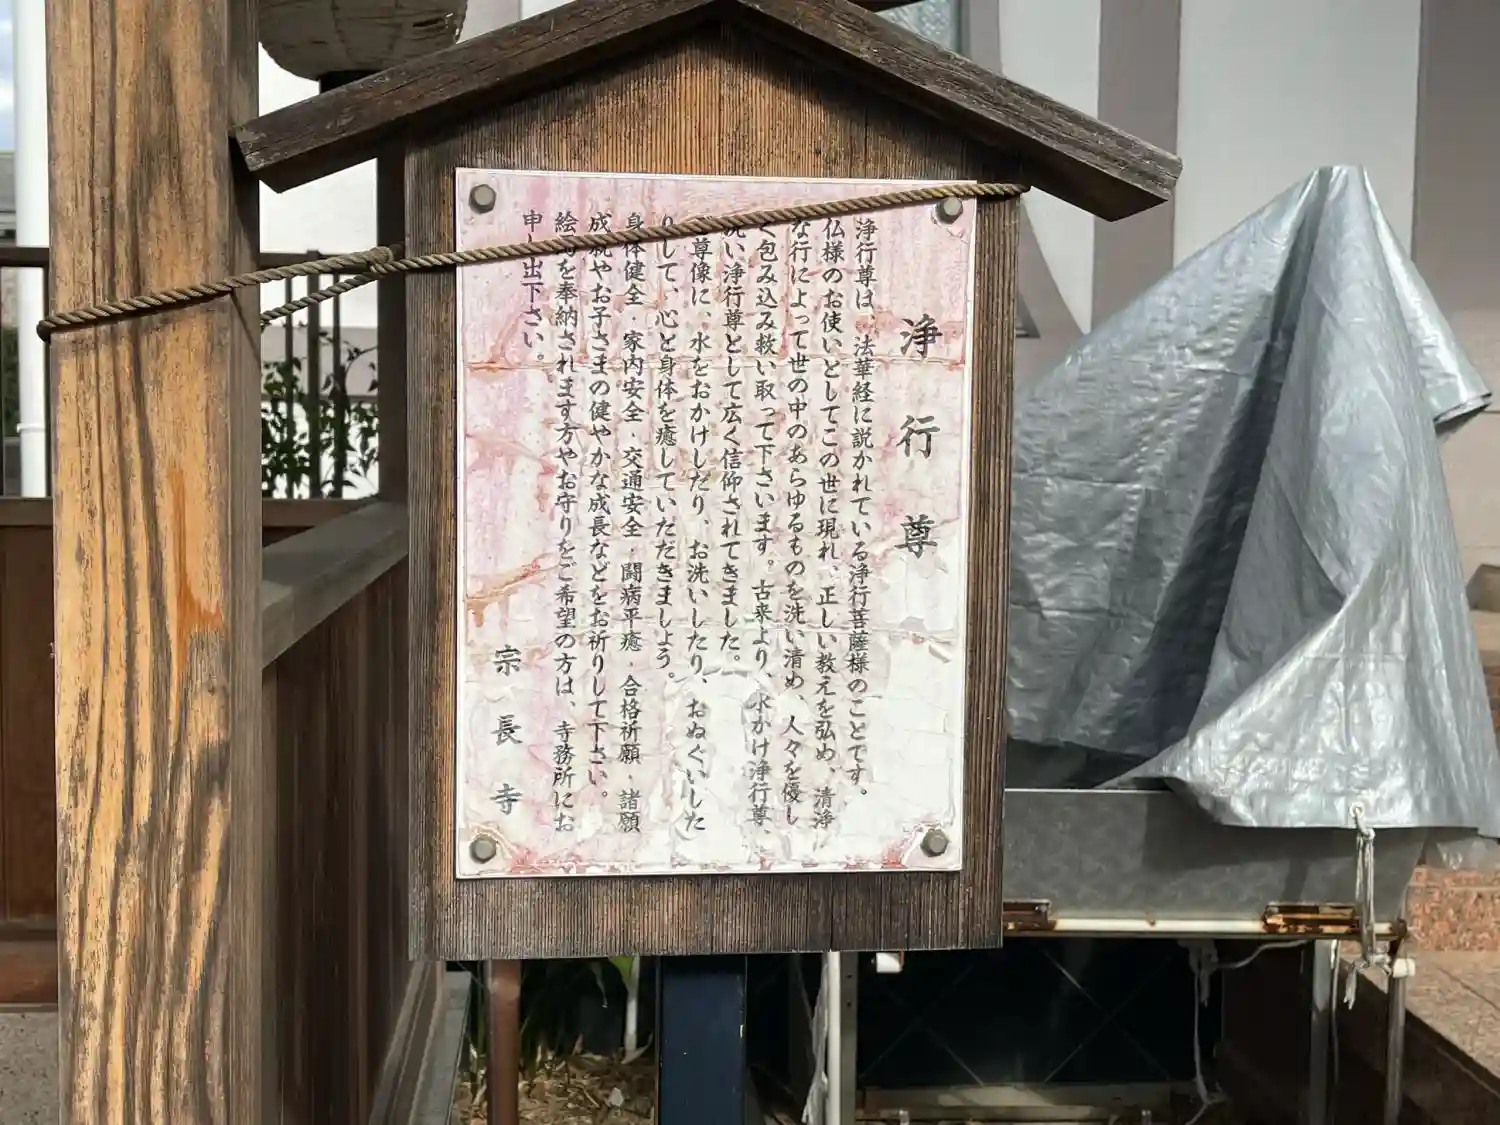 浄行尊
浄行尊は、法華経に説かれている浄行菩薩様のことです。
仏様のお使いとしてこの世に現れ、正しい教えを弘め、清浄
な行によって世の中のあらゆるものを洗い清め、人々を優し
く包み込み救い取って下さいます。古来より、水かけ浄行尊、
洗い浄行尊として広く信仰されてきました。
尊像に、水をおかけしたり、お洗いしたり、おぬぐいした
りして、心と身体を癒していただきましょう。
身体健全・家内安全・交通安全・闘病平癒・合格祈願・諸願
成就やお子さまの健やかな成長などをお祈りして下さい。
絵馬を奉納されます方やお守りをご希望の方は、寺務所にお
申し出下さい。
宗長寺